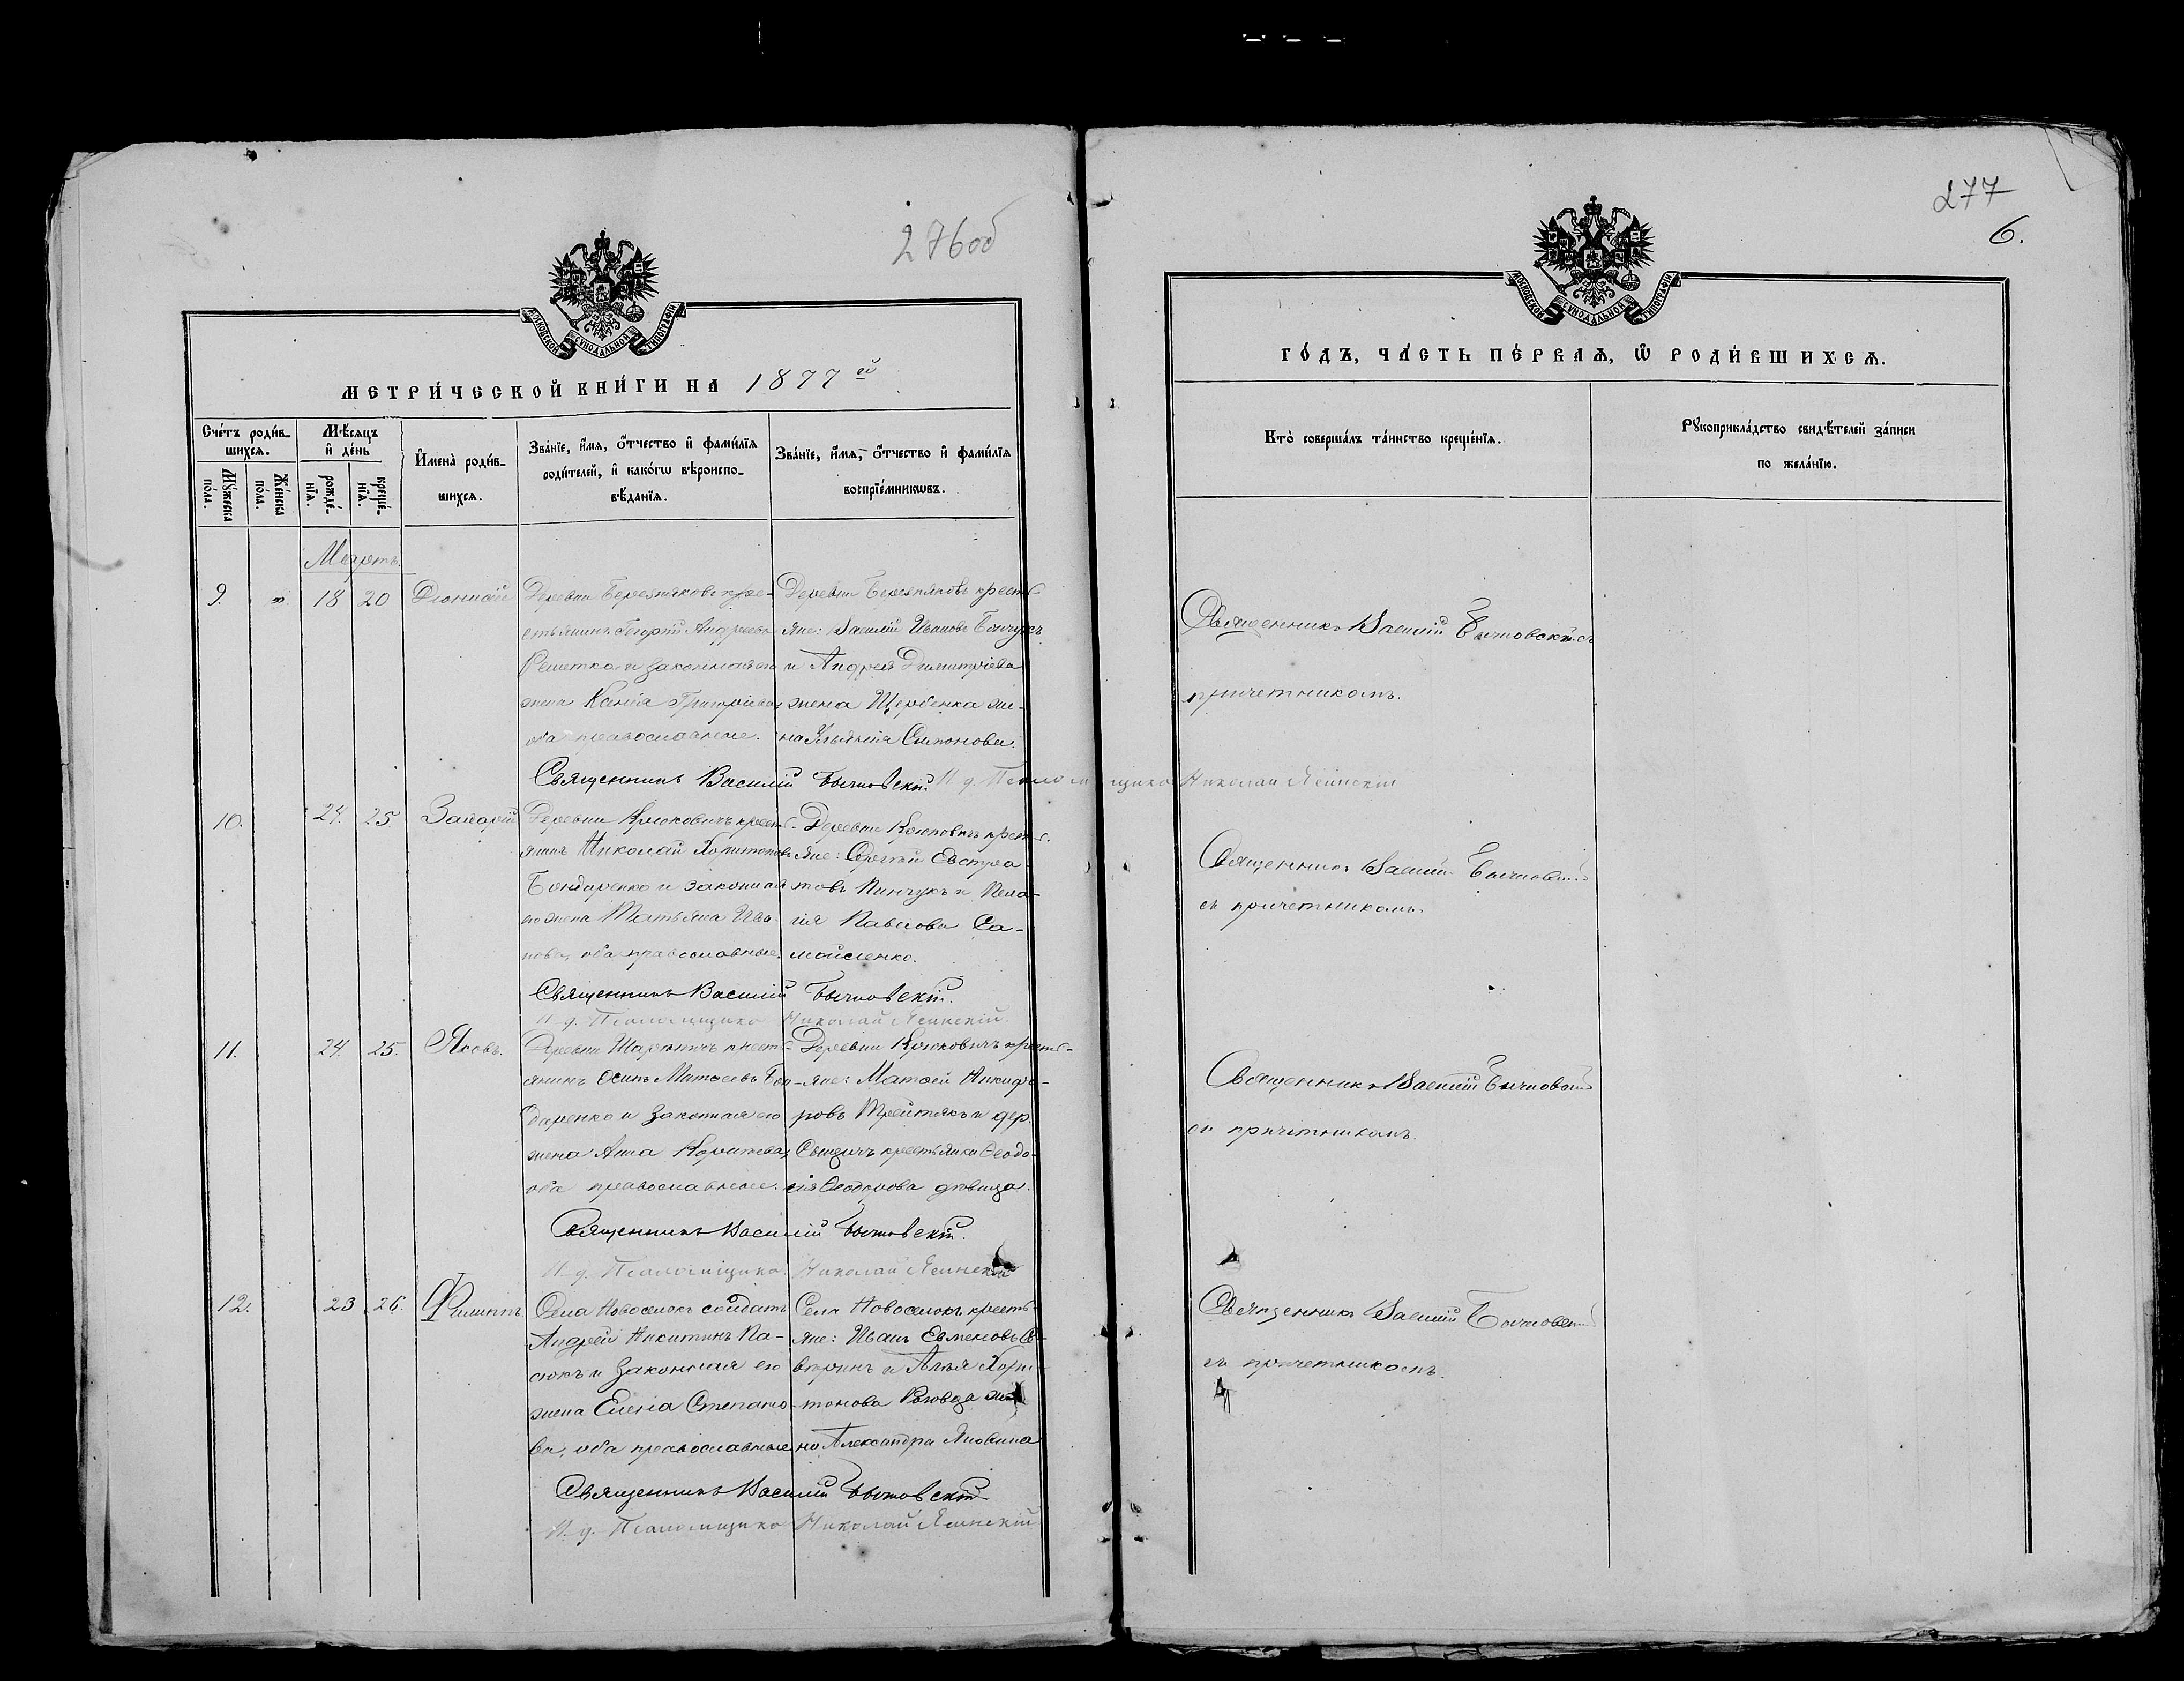 276об
МОСКОВСКОЙ СУНОДАЛЬНОЙ ТИПОГРАФІИ
МЕТРИ́ЧЕСКОЙ КНИ́ГИ НА 1877 ой
Сче́тъ роди́в-
шихсѧ.
Мѹ́жеска
по́ла.
Же́нска
по́ла.
Мѣ́сѧцъ
и҆ де́нь
рожде́-
нїѧ.
креще́-
нїѧ.
И҆мена̀ роди́в-
шихсѧ.
Зва́нїе, и҆́мѧ, о҆́тчество и҆ фами́лїѧ
роди́телей, и҆ како́гѡ вѣроиспо-
вѣ́данїѧ.
Зва́нїе, и҆́мѧ, о҆́тчество и҆ фами́лїѧ
воспрїе́мникѡвъ.
Мартъ
9.
18
20
Діонисій
Деревни Березняковъ кре-
стьянинъ Георгій Андреевъ
Решетка и законная его
жена Ксенія Григоріева,
оба православные.
Деревни Березняковъ кресть-
яне: Василій Ивановъ
и Андрея Димитріева
жена Щербенка же-
на
Священникъ Василій Бычковскій И. д. Псаломщика Николай Ясинскій
10.
24.
25.
Захарій
Деревни Крюковичъ кресть-
янинъ Николай Харитоновъ
Бондаренко и законная
его жена Татьяна Ива-
нова, оба православные.
Деревни Крюковичъ кресть-
яне: Сергій Евстра-
товъ Пинчукъ и Пела-
гія Павлова Са-
мойленко.
Священникъ Василій Бычковскій.
И. д. Псаломщика Николай Ясинскій.
11.
24.
25.
Яковъ.
Деревни кресть-
янинъ Осипъ Матѳеевъ Бон-
даренко и законная его
жена Анна
оба православные.
Деревни Крюковичъ кресть-
яне: Матѳей Никифо-
ровъ и дер.
крестьянка Ѳеодо-
сія девица.
Священникъ Василій Бычковскій.
И. д. Псаломщика Николай Ясинскій
12.
23
26.
Филиппъ.
Села Новоселокъ солдатъ
Андрей Никитинъ Па-
сюкъ и законная его
жена Елена Степано-
ва, оба православные
Села Новоселокъ кресть-
яне: Иванъ
и Хари-
тонова
на Александра
Священникъ Василій Бычковскій
И. д. Псаломщика Николай Ясинскій
277
6.
МОСКОВСКОЙ СУНОДАЛЬНОЙ ТИПОГРАФІИ
ГО́ДЪ, ЧА́СТЬ ПЕ́РВАѦ, Ѡ҆ РОДИ́ВШИХСѦ.
Кто̀ соверша́лъ та́инство креще́нїѧ.
Рѹкоприкла́дство свидѣ́телей за́писи
по жела́нїю.
Священникъ Василій Бычковскій съ
причетникомъ.
Священникъ Василій Бычковскій
съ причетникомъ.
Священникъ Василій Бычковскій
съ причетникомъ.
Священникъ Василій Бычковскій
съ причетникомъ.